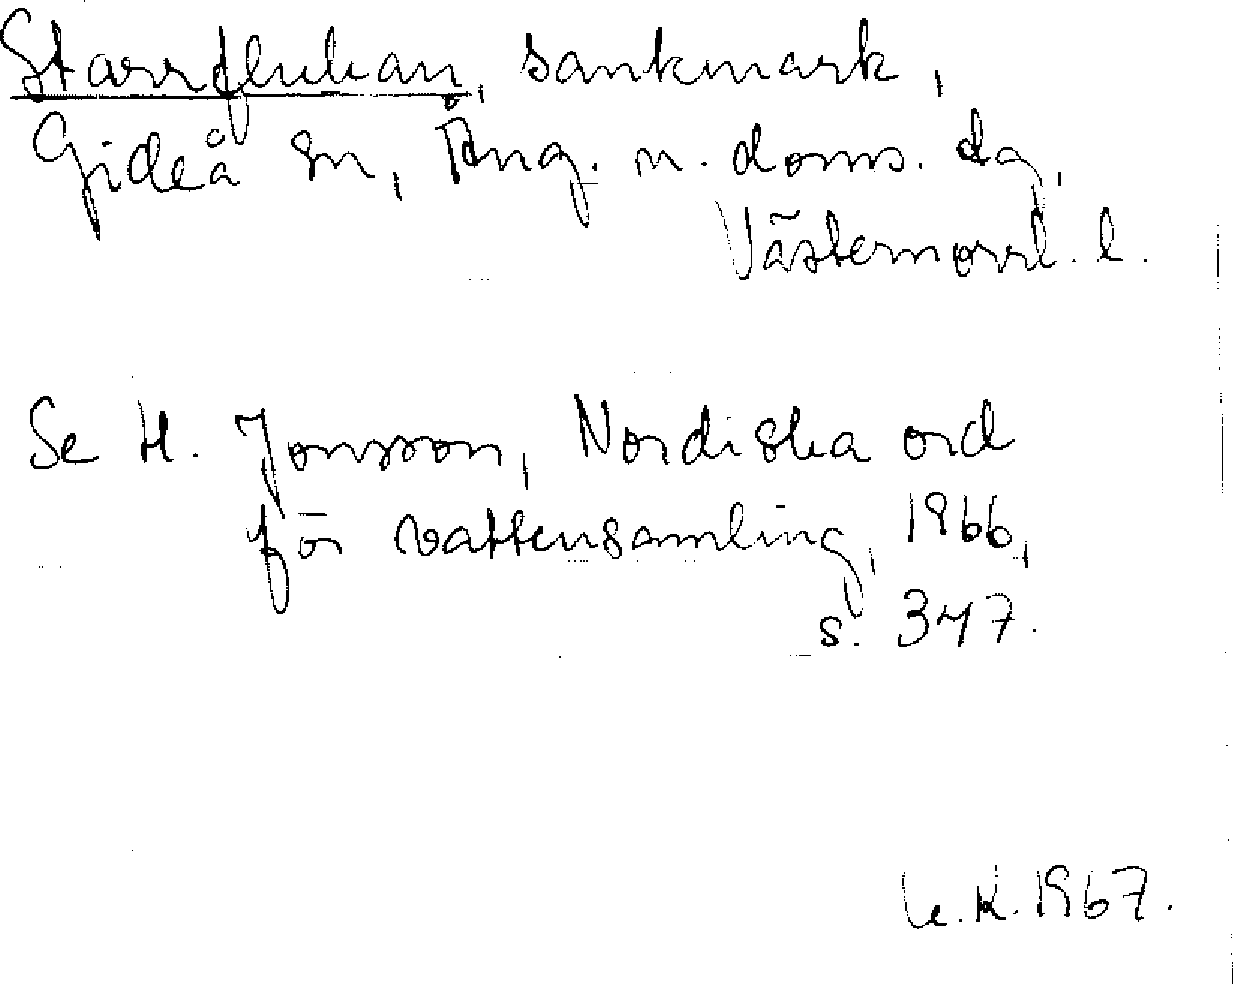 Starrflukan, sankmark,
Gideå sn, Ång. n. doms. dg,
Västernorrl. l.
Se H. Jonsson, Nordiska ord
för vattensamling, 1966,
s. 347.
K. 1967.